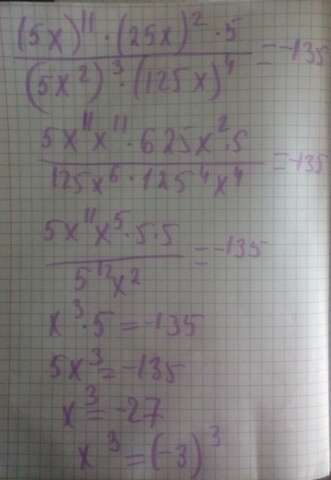 (5x)^11 · (25x)^2 · 5 / (5x^2)^3 · (125x)^4 = -135
5x^11 x^11 · 625x^2 · 5 / 125x^6 · 125^4 x^4 = -135
5x^11 x^5 · 5 · 5 / 5^12 x^2 = -135
x^3 · 5 = -135
5x^3 = -135
x^3 = -27
x^3 = (-3)^3